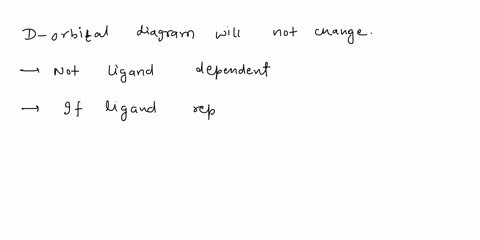 D-orbital diagram will not change.
→ Not ligand dependent
→ If ligand rep